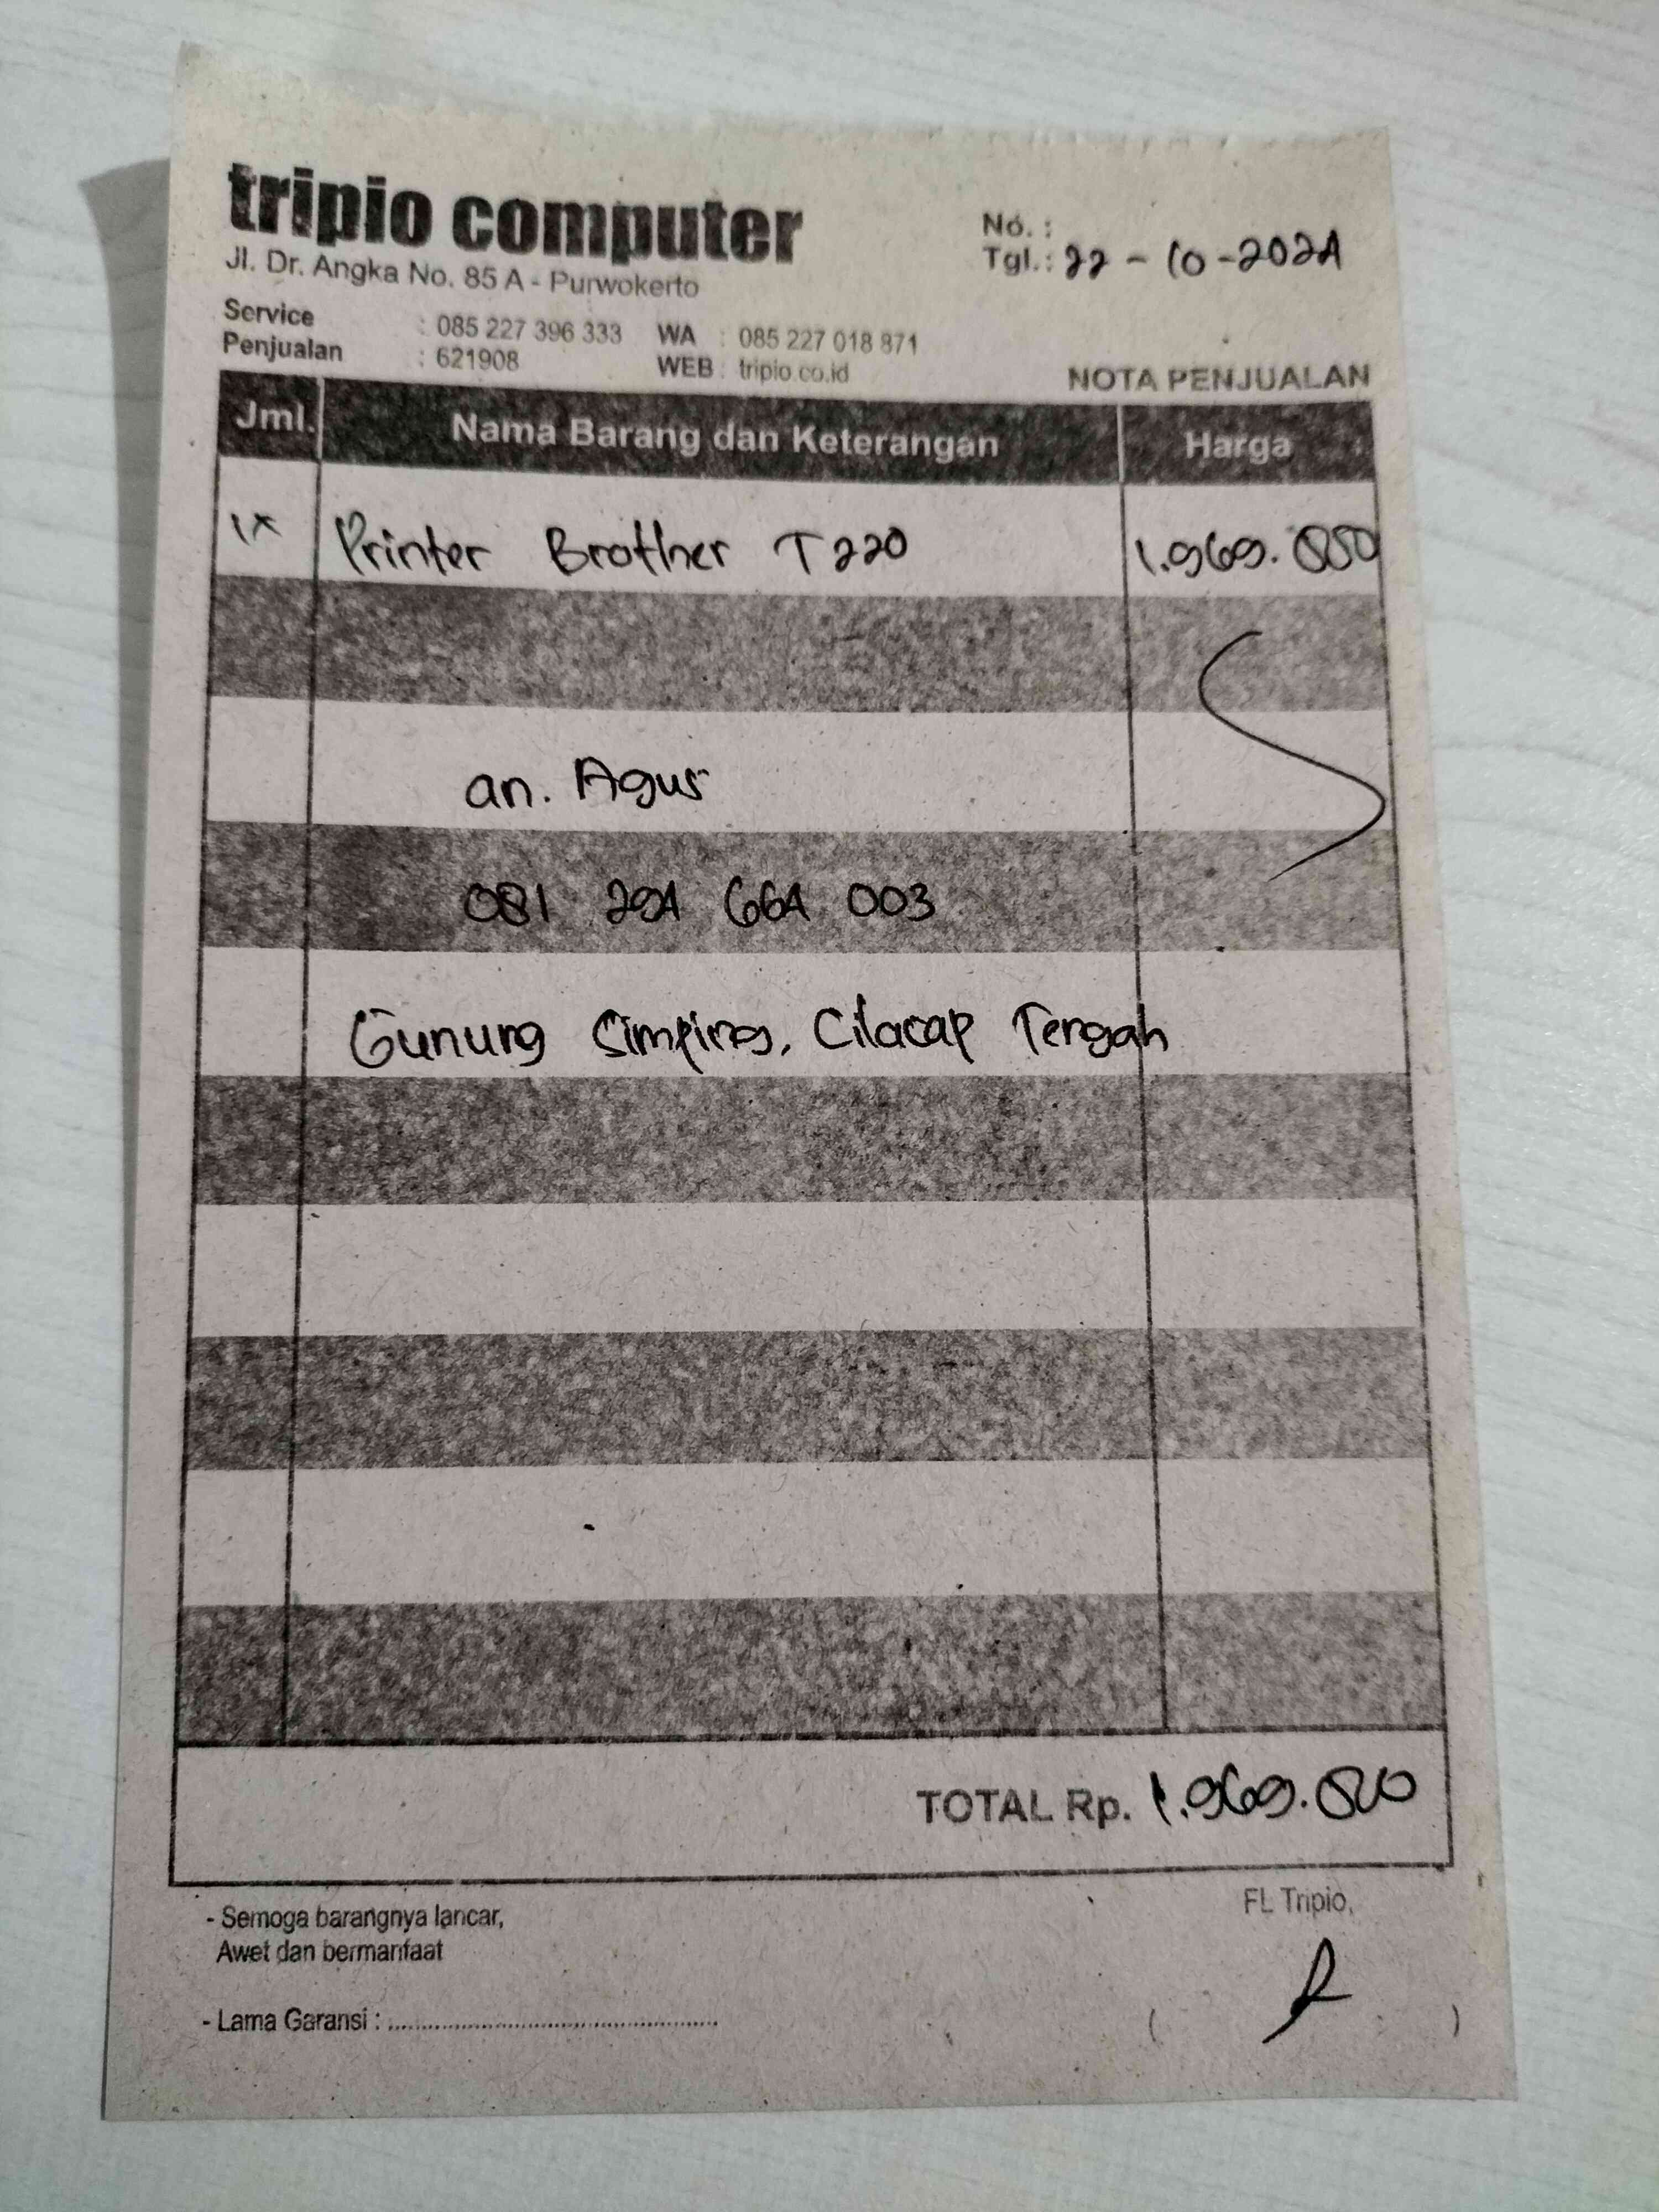 tripio computer
Jl. Dr. Angka No. 85 A - Purwokerto
No. :
Tgl.: 22 - 10 - 2024
Service : 085 227 396 333 WA : 085 227 018 871
Penjualan : 621908 WEB : tripio.co.id
NOTA PENJUALAN
Jml. Nama Barang dan Keterangan Harga
1x Printer Brother T220
an. Agus
081 294 664 003
Gunung Simping, Cilacap Tengah
TOTAL Rp.
FL Tripio,
- Semoga barangnya lancar,
Awet dan bermanfaat
- Lama Garansi : ......................................................
( )